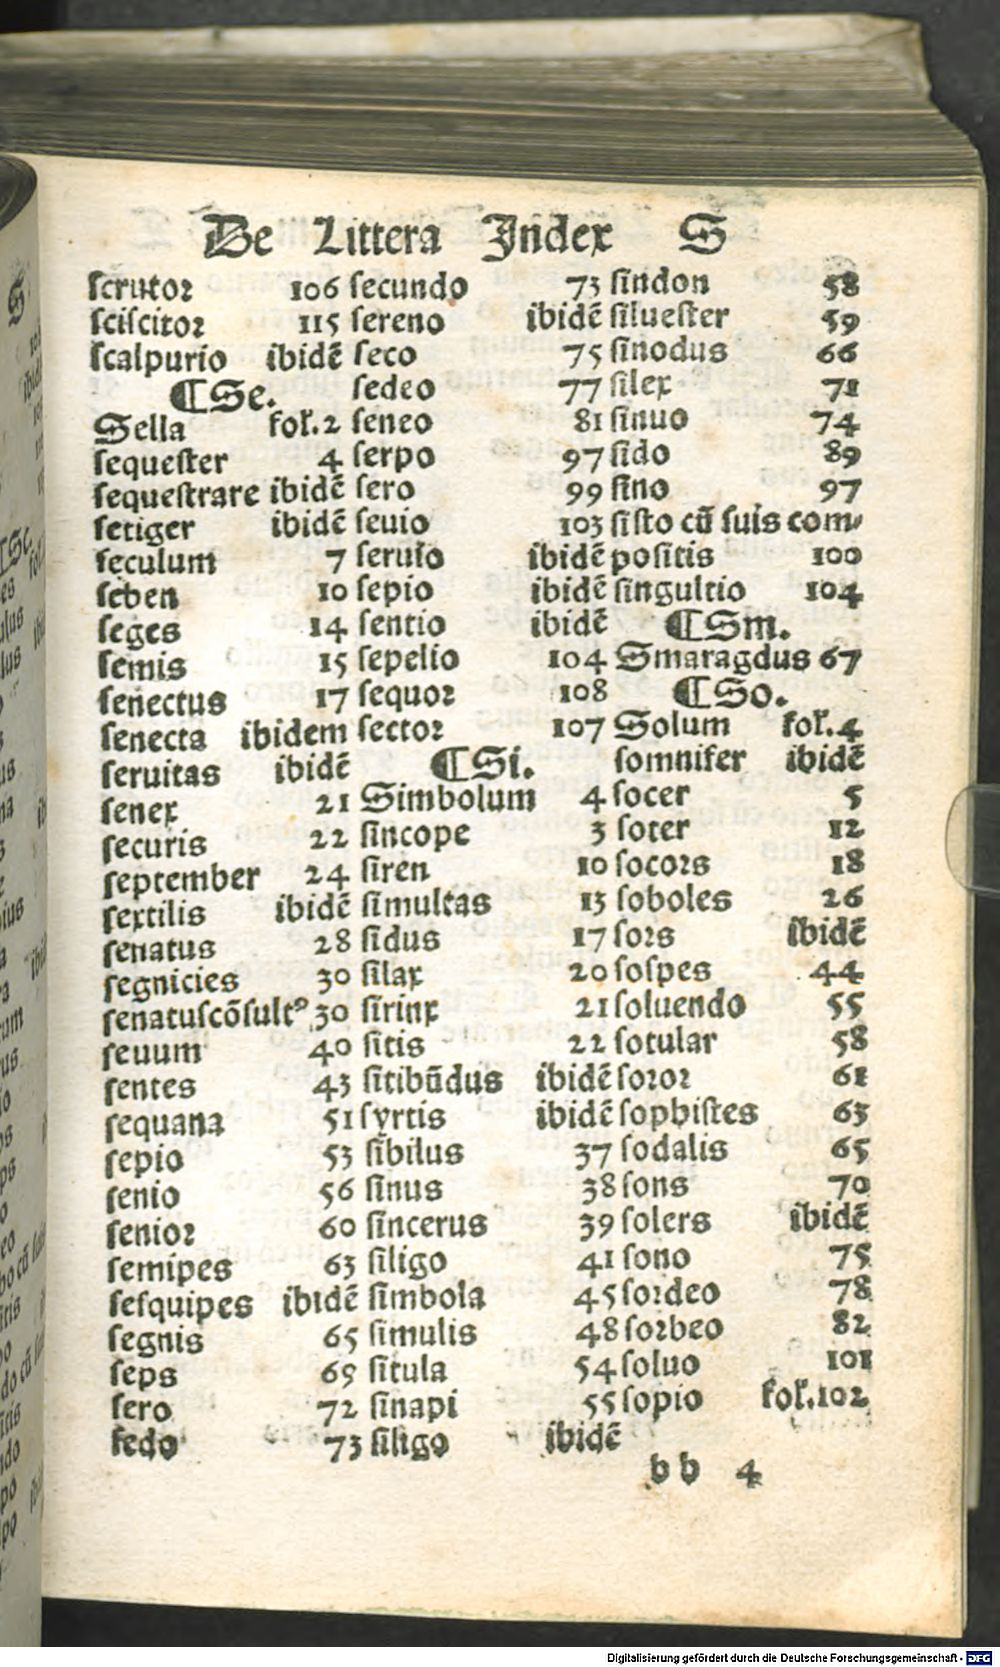 De Littera Index S
scrutor 106
sciscitor 115
scalpurio ibidē
¶Se.
Sella fol.2
sequester 4
sequestrare ibidē
setiger ibidē
seculum 7
seben 10
seges 14
semis 15
senectus 17
senecta ibidem
seruitas ibidē
senex 21
securis 22
september 24
sextilis ibidē
senatus 28
segnicies 30
senatuscōsultꝰ 30
seuum 40
sentes 43
sequana 51
sepio 53
senio 56
senior 60
semipes 63
sesquipes ibidē
segnis 65
seps 69
sero 72
sedo 73
secundo 73
sereno ibidē
seco 75
sedeo 77
seneo 81
serpo 97
sero 99
seuio 103
seruio ibidē
sepio ibidē
sentio ibidē
sepelio 104
sequor 108
sector 107
¶Si.
Simbolum 4
sincope 3
siren 10
simultas 13
sidus 17
silax 20
sirinx 21
sitis 22
sitibūdus ibidē
syrtis ibidē
sibilus 37
sinus 38
sincerus 39
siligo 41
simbola 45
simulis 48
situla 54
sinapi 55
siligo ibidē
sindon 58
siluester 59
sinodus 66
silex 71
sinuo 74
sido 89
sino 97
sisto cū suis com⸗
positis 100
singultio 104
¶Sm.
Smaragdus 67
¶So.
Solum fol.4
somnifer ibidē
socer 5
soter 12
socors 18
soboles 26
sors ibidē
sospes 44
soluendo 55
sotular 58
soror 61
sophistes 63
sodalis 65
sons 70
solers ibidē
sono 75
sordeo 78
sorbeo 82
soluo 101
sopio fol.102
bb 4
Digitalisierung gefördert durch die Deutsche Forschungsgemeinschaft - DFG